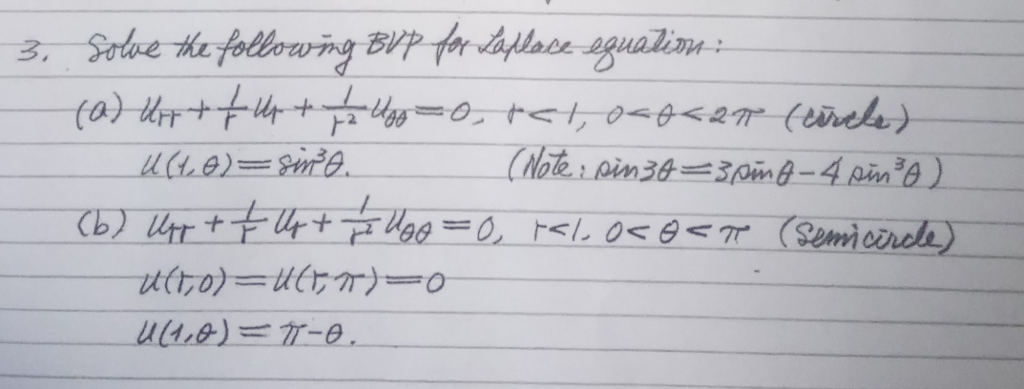 3. Solve the following BVP for Laplace equation:
(a) u_rr + 1/r u_r + 1/r² u_θθ = 0, r<1, 0<θ<2π (circle)
u(1,θ) = sin³θ. (Note: sin3θ = 3sinθ - 4sin³θ)
(b) u_rr + 1/r u_r + 1/r² u_θθ = 0, r<1, 0<θ<π (semicircle)
u(r,0) = u(r,π) = 0
u(1,θ) = π-θ.